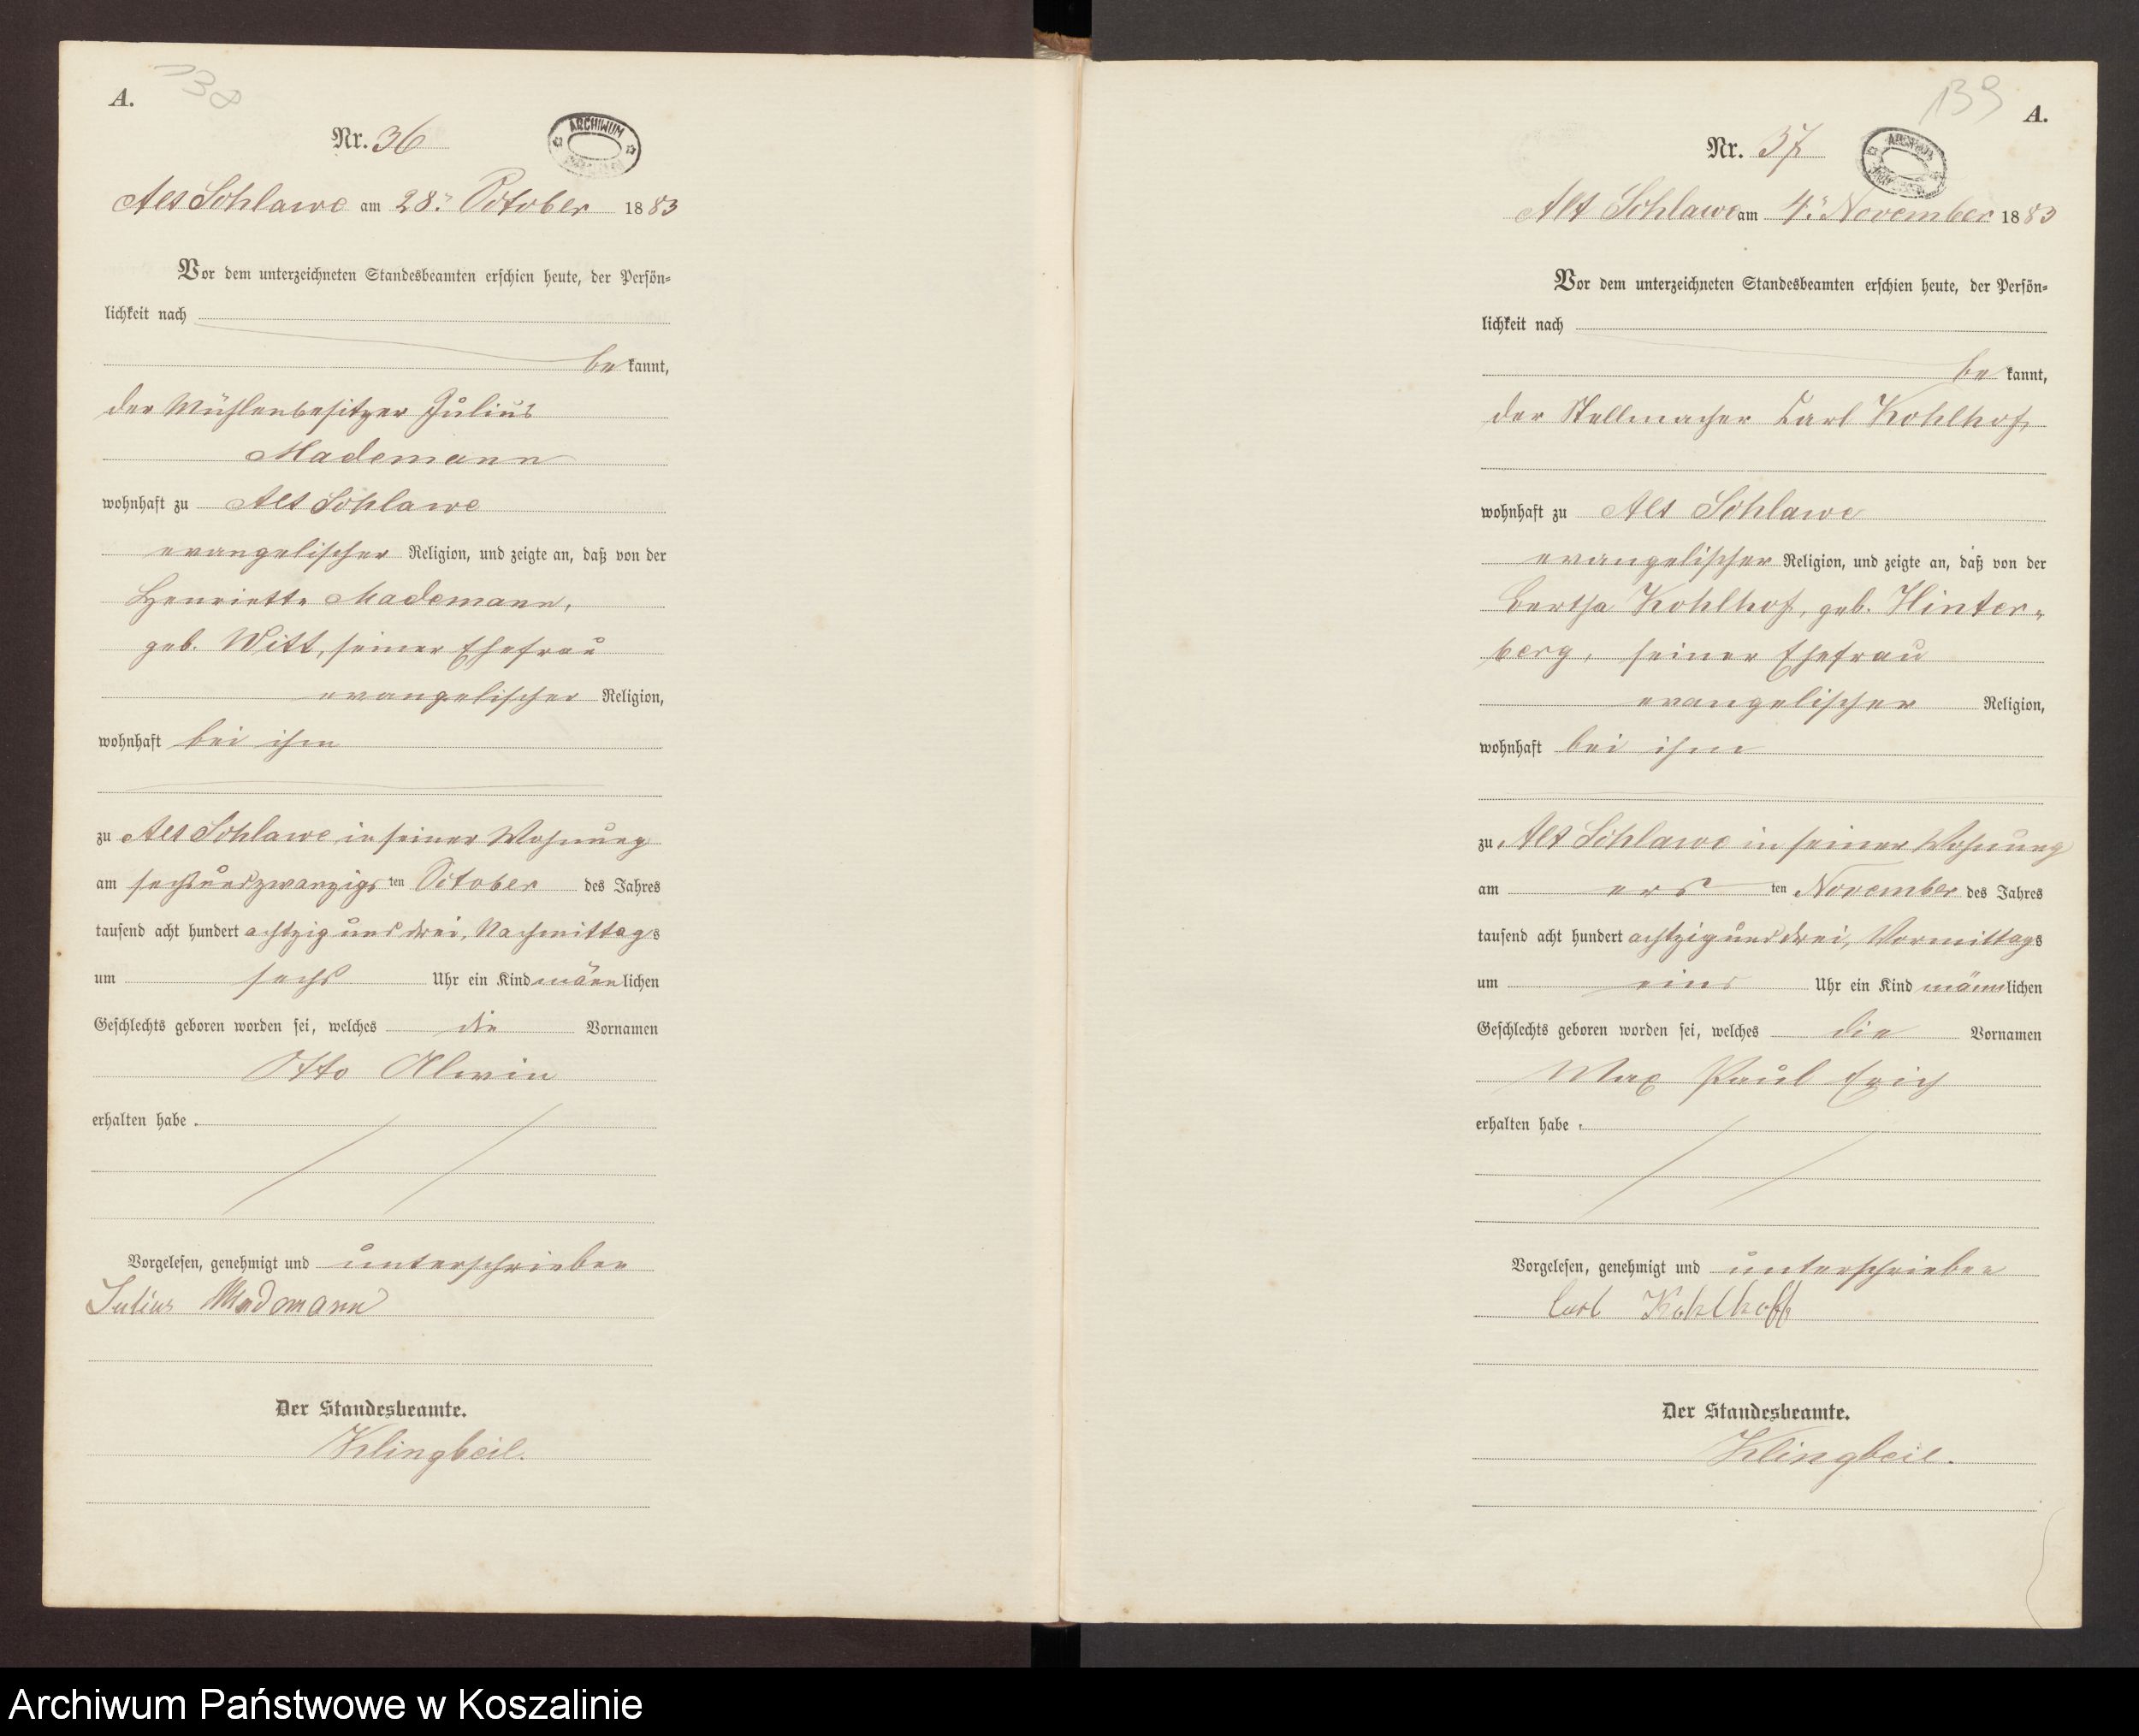 A.
138
Nr. 36
ARCHIWUM
Alt Schlawe am 28. October 1883
Vor dem unterzeichneten Standesbeamten erschien heute, der Persön-
lichkeit nach
be kannt,
der Mühlenbesitzer Julius
Mademann
wohnhaft zu Alt Schlawe
evangelischer Religion, und zeigte an, daß von der
Henriette Mademann,
geb. Witt, seiner Ehefrau
evangelischer Religion,
wohnhaft bei ihm
zu Alt Schlawe in seiner Wohnung
am sechsundzwanzigs ten October des Jahres
tausend acht hundert achtzig und drei, Nachmittags
um sechs Uhr ein Kind männlichen
Geschlechts geboren worden sei, welches die Vornamen
Otto Alwin
erhalten habe.
Vorgelesen, genehmigt und unterschrieben
Julius Madmann
Der Standesbeamte.
Klingbeil.
139
A.
Nr. 37
Alt Schlawe am 4. November 1883
Vor dem unterzeichneten Standesbeamten erschien heute, der Persön-
lichkeit nach
be kannt,
der Stellmacher Carl Kohlhof,
wohnhaft zu Alt Schlawe
evangelischer Religion, und zeigte an, daß von der
Bertha Kohlhof, geb. Hinter-
berg, seiner Ehefrau
evangelischer Religion,
wohnhaft bei ihm
zu Alt Schlawe in seiner Wohnung
am ers ten November des Jahres
tausend acht hundert achtzig und drei, Vormittags
um eins Uhr ein Kind männlichen
Geschlechts geboren worden sei, welches die Vornamen
Max Paul Erich
erhalten habe.
Vorgelesen, genehmigt und unterschrieben
Carl Kohlhoff
Der Standesbeamte.
Klingbeil.
Archiwum Państwowe w Koszalinie